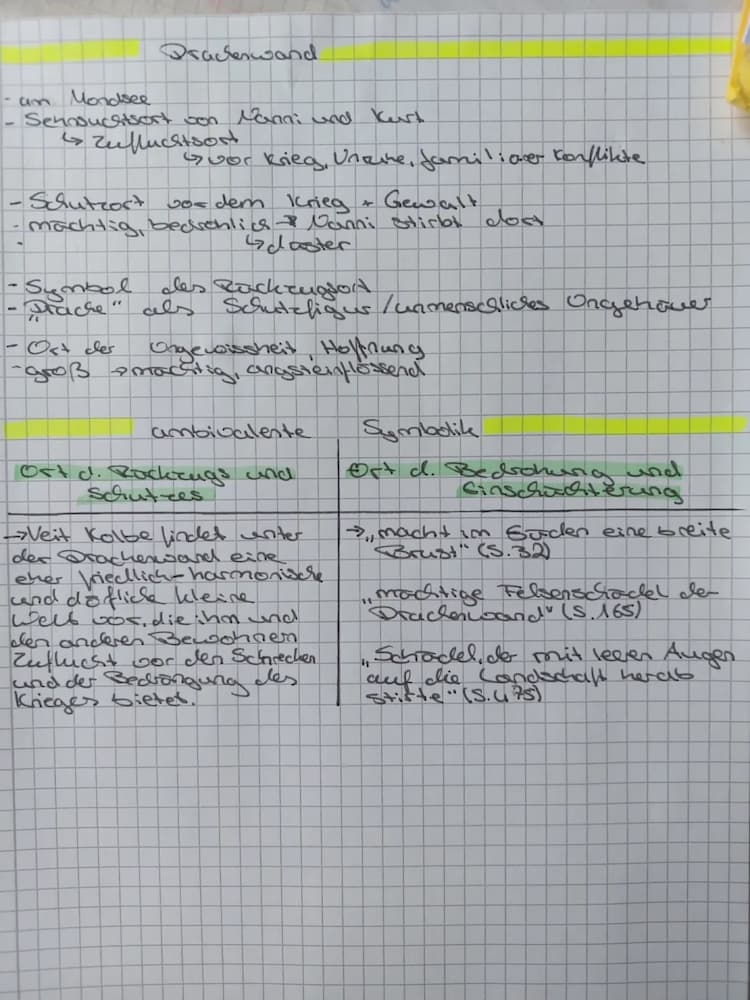 Drachenwand
- am Mondsee
- Sehnsuchtsort von Nanni und Kurt
↳ Zufluchtsort
↳ vor Krieg, Unruhe, familiärer Konflikte
- Schutzort vor dem Krieg + Gewalt
- mächtig, bedrohlich → Nanni stirbt dort
↳ düster
- Symbol des Rückzugsort
- "Drache" als Schutzfigur/unmenschliches Ungeheuer
- Ort der Ungewissheit, Hoffnung
- groß → mächtig, angsteinflössend
ambivalente Symbolik
Ort d. Rückzugs und Schutzes
Ort d. Bedrohung und Einschüchterung
→ Veit Kolbe findet unter
der Drachenwand eine
eher friedlich-harmonische
und döfliche kleine
Welt vor, die ihm und
den anderen Bewohnern
Zuflucht vor den Schrecken
und der Bedrängung des
Krieges bietet.
→ „macht im Süden eine breite
Brust" (S.32)
„mächtige Felsenschädel der
Drachenwand" (S.165)
„Schädel, der mit leeren Augen
auf die Landschaft herab
stierte" (S.475)